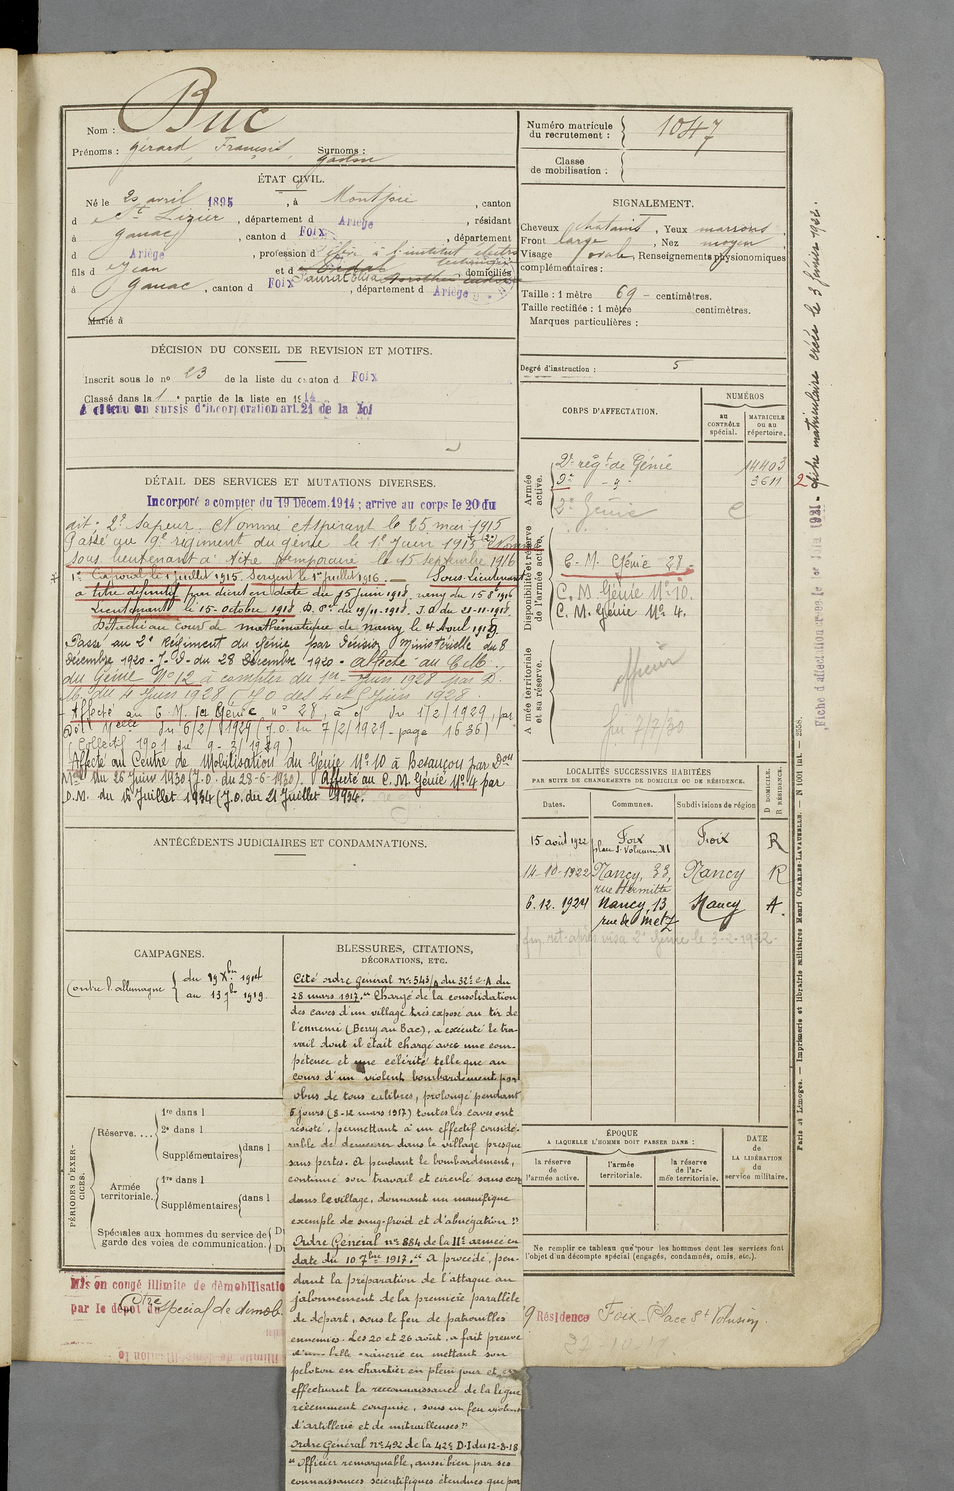 Nom : Buc
Prénoms : Gérard, François, Surnoms : Gaston
ÉTAT CIVIL.
Né le 20 avril 1895, à Montjoie, canton
d St Lizier, département d Ariège, résidant
à Ganac, canton d Foix, département
d Ariège, profession d'élève à l'institut électro
technique
fils d Jean et d domiciliés
à Ganac, canton d Foix, département d Ariège
Marié à
DÉCISION DU CONSEIL DE REVISION ET MOTIFS.
Inscrit sous le no 23 de la liste du canton d Foix
Classé dans la 1e partie de la liste en 1914
A obtenu un sursis d'incorporation art. 21 de la loi
DÉTAIL DES SERVICES ET MUTATIONS DIVERSES.
Incorporé a compter du 19 Décem. 1914 ; arrive au corps le 20 du
dit. 2e Sapeur. Nommé Aspirant le 25 mai 1915
Passé au 9e régiment du génie le 1er Juin 1915 Nommé
sous lieutenant à titre temporaire le 15 septembre 1916
1° Caporal le 1er juillet 1915 Sergent le 1er juillet 1916. — Sous-Lieutenant
à titre définitif par décret en date du 15 juin 1918, rang du 15 8bre 1916
Lieutenant le 15 Octobre 1918 D. Pel du 19/11-1918. J.O du 21-11-1918.
Détaché au Cours de mathématique de Nancy le 4 Avril 1919.
Passé au 2e Régiment du Génie par Décision Ministérielle du 8
Décembre 1920 - J.O - du 28 Décembre 1920 - affecté au C.M.
du Génie No 12 à compter du 1er Juin 1928 par D.
M. du 4 Juin 1928 (J.O des 4 et 5 Juin 1928.
- Affecté au C.M. du Génie no 28, à c/ du 1/2/1929, par
Don Melle du 6/2/1929 (J.O. du 7/2/1929 - page 1636)
(Collectif 1901 du 9-2/1929)
Affecté au Centre de Mobilisation du Génie No 10 à Besançon par Don
Mlle du 26 Juin 1930 (J.O. du 28-6-1930). Affecté au C.M. Génie No 4 par
D.M. du 15 Juillet 1934 (J.O. du 21 Juillet 1934.
ANTÉCÉDENTS JUDICIAIRES ET CONDAMNATIONS.
CAMPAGNES.
Contre l'allemagne du 19 Xbre 1914
au 13 7bre 1919.
PÉRIODES D'EXERCICES.
Réserve.... 1re dans l
2e dans l
Supplémentaires dans l
Armée territoriale. 1re dans l
Supplémentaires dans l
Spéciales aux hommes du service de
garde des voies de communication.
BLESSURES, CITATIONS,
DÉCORATIONS, ETC.
Cité ordre Général no 545/A du 32e C.A du
28 mars 1917. "Chargé de la consolidation
des caves d'un village très exposé au tir de
l'ennemi (Berry au Bac), a exécuté le tra-
vail dont il était chargé avec une com-
pétence et une célérité telle que au
cours d'un violent bombardement par
obus de tous calibres, prolongé pendant
5 jours (8-12 mars 1917) toutes les caves ont
résisté, permettant à un effectif considé-
rable de demeurer dans le village presque
sans pertes. A pendant le bombardement,
continué son travail et circulé sans cesse
dans le village, donnant un magnifique
exemple de sang-froid et d'abnégation."
Ordre Général no 884 de la IIe armée en
date du 10 7bre 1917. "A procédé, pen-
dant la préparation de l'attaque au
jalonnement de la première parallèle
de départ, sous le feu de patrouilles
ennemies. Les 20 et 26 août, a fait preuve
d'une belle crânerie en mettant son
peloton en chantier en plein jour et en
effectuant la reconnaissance de la ligne
récemment conquise, sous un feu violent
d'artillerie et de mitrailleuses"
Ordre Général no 492 de la 42e D.I du 12-8-18
"Officier remarquable, aussi bien par ses
connaissances scientifiques étendues que par
Mis en congé illimité de démobilisatio
par le dépôt du Ctre spécial de démob.
Numéro matricule
du recrutement : 1047
Classe
de mobilisation :
SIGNALEMENT.
Cheveux chatains, Yeux marrons,
Front large, Nez moyen
Visage ovale, Renseignements physionomiques
complémentaires :
Taille : 1 mètre 69 centimètres.
Taille rectifiée : 1 mètre centimètres.
Marques particulières :
Degré d'instruction : 5
CORPS D'AFFECTATION.
NUMÉROS
au CONTRÔLE spécial.
MATRICULE ou au répertoire.
Armée active.
2e régt de Génie 14403
9e - " - 3611
2e Génie
Disponibilité et réserve de l'armée active.
C. M. Génie 28.
C. M. Génie No 10.
C. M. Génie No 4.
Armée territoriale et sa réserve.
officier
LOCALITÉS SUCCESSIVES HABITÉES
PAR SUITE DE CHANGEMENTS DE DOMICILE OU DE RÉSIDENCE.
Dates. Communes. Subdivisions de région
D DOMICILE. R RÉSIDENCE.
15 août 1922 Foix Foix R
place St Volusien
14-10-1922 Nancy, 33, Nancy R
rue Hermitte
6.12.1924 Nancy, 13 Nancy A.
rue de Metz
ÉPOQUE
A LAQUELLE L'HOMME DOIT PASSER DANS :
la réserve de l'armée active.
l'armée territoriale.
la réserve de l'armée territoriale.
DATE de LA LIBÉRATION du service militaire.
Ne remplir ce tableau que pour les hommes dont les services font
l'objet d'un décompte spécial (engagés, condamnés, omis, etc.).
Résidence Foix - Place St Volusien.
fiche matriculaire créée le 3 février 1922.
Fiche d'affectation créée le 1er Juin 1921
Paris et Limoges. — Imprimerie et librairie militaires Henri CHARLES-LAVAUZELLE. — N 1001 int. — 2558.